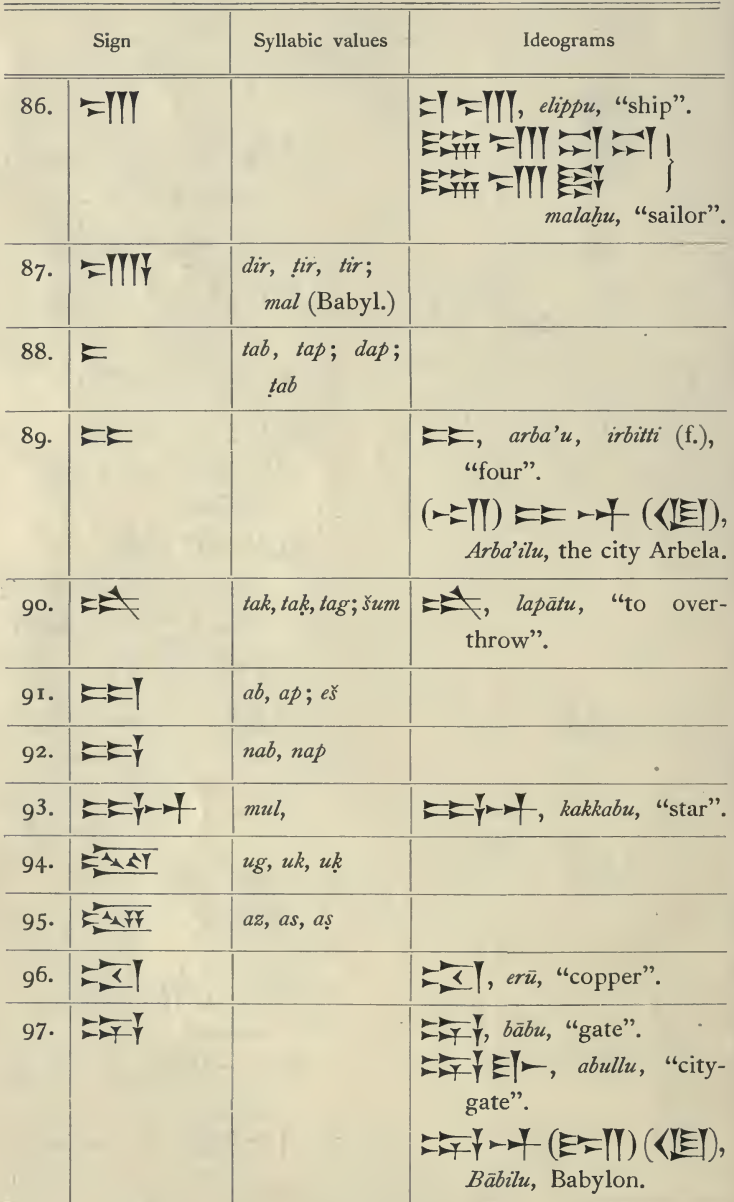 Sign Syllabic values Ideograms
86. 𒈣 𒄑 𒈣, elippu, “ship”.
𒇽 𒈣 𒁺 𒁺 }
𒇽 𒈣 𒁻
malaḫu, “sailor”.
87. 𒋛𒀀 dir, ṭir, tir;
mal (Babyl.)
88. 𒋰 tab, tap; dap;
ṭab
89. 𒇹 𒇹, arba’u, irbitti (f.),
“four”.
(𒌷) 𒇹 𒀭 (𒆠),
Arba’ilu, the city Arbela.
90. 𒋳 tak, taḳ, tag; šum 𒋳, lapātu, “to over-
throw”.
91. 𒀊 ab, ap; eš
92. 𒀮 nab, nap
93. 𒀯 mul, 𒀯, kakkabu, “star”.
94. 𒊌 ug, uk, uḳ
95. 𒊍 az, as, aṣ
96. 𒍐 𒍐, erū, “copper”.
97. 𒆍 𒆍, bābu, “gate”.
𒆍 𒃲, abullu, “city-
gate”.
𒆍 𒀭 (𒊏) (𒆠),
Bābilu, Babylon.